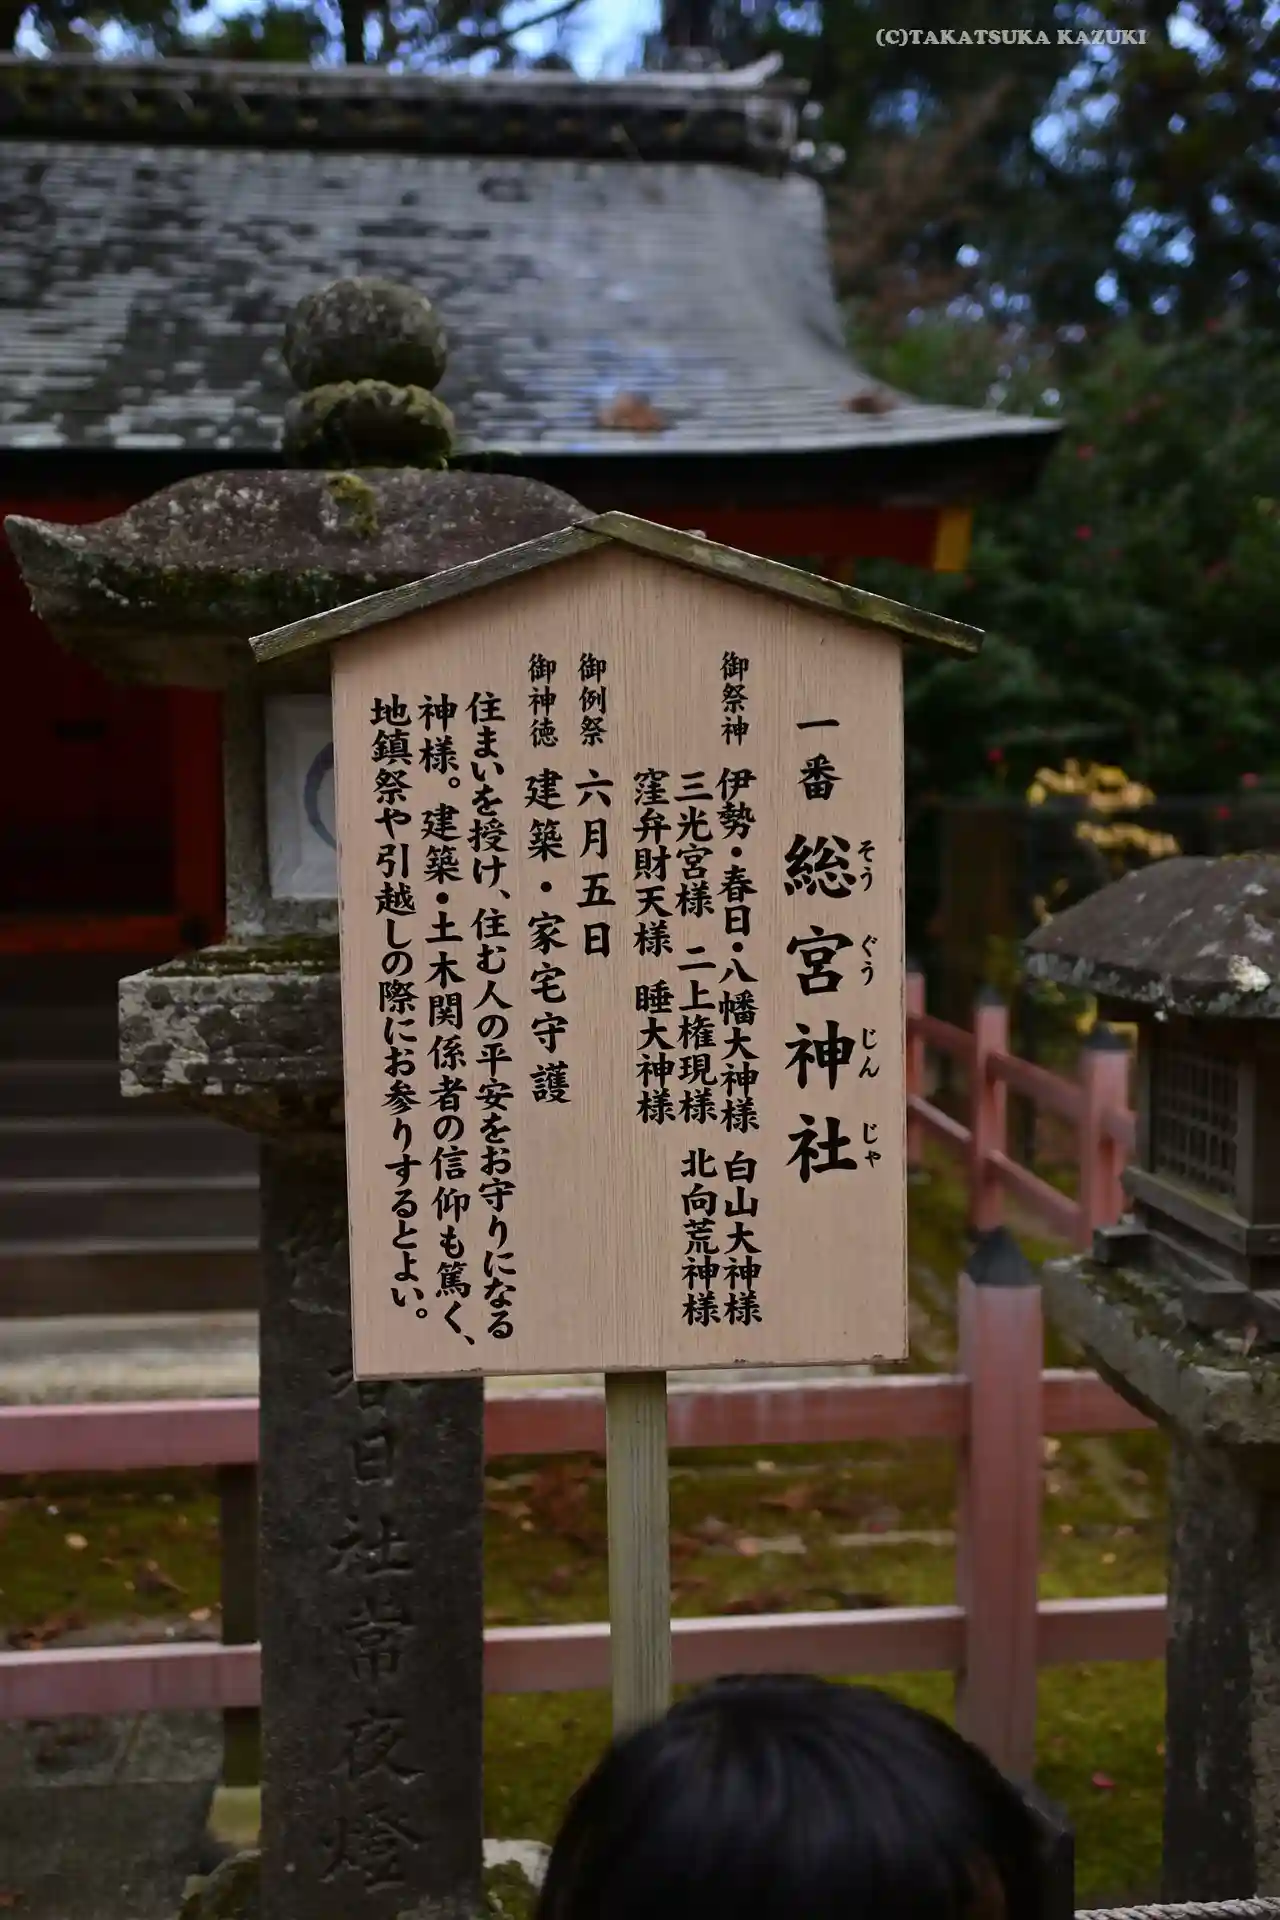 (C)TAKATSUKA KAZUKI
一番 総宮神社
そう ぐう じん じゃ
御祭神 伊勢・春日・八幡大神様 白山大神様
三光宮様 二上権現様 北向荒神様
窪弁財天様 睡大神様
御例祭 六月五日
御神徳 建築・家宅守護
住まいを授け、住む人の平安をお守りになる
神様。建築・土木関係者の信仰も篤く、
地鎮祭や引越しの際にお参りするとよい。
日社常夜燈